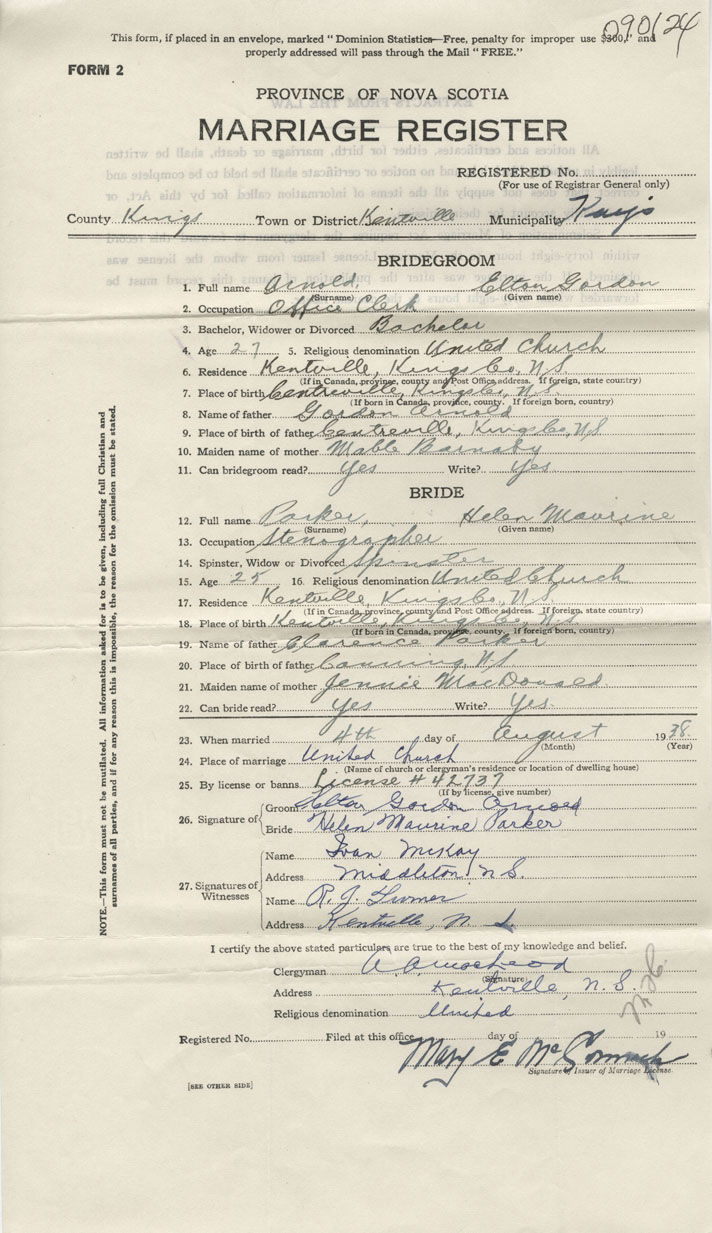 090124
This form, if placed in an envelope, marked "Dominion Statistics—Free, penalty for improper use $300," and
properly addressed will pass through the Mail "FREE."
FORM 2
PROVINCE OF NOVA SCOTIA
MARRIAGE REGISTER
REGISTERED No.
(For use of Registrar General only)
County Kings Town or District Kentville Municipality Kings
BRIDEGROOM
1. Full name Arnold, Elton Gordon
(Surname) (Given name)
2. Occupation Office Clerk
3. Bachelor, Widower or Divorced Bachelor
4. Age 27 5. Religious denomination United Church
6. Residence Kentville, Kings Co., N.S.
(If in Canada, province, county and Post Office address. If foreign, state country)
7. Place of birth Centreville, Kings Co., N.S.
(If born in Canada, province, county. If foreign born, country)
8. Name of father Gordon Arnold
9. Place of birth of father Centreville, Kings Co., N.S.
10. Maiden name of mother Mable Barnaby
11. Can bridegroom read? Yes Write? Yes
BRIDE
12. Full name Parker, Helen Maurine
(Surname) (Given name)
13. Occupation Stenographer
14. Spinster, Widow or Divorced Spinster
15. Age 25 16. Religious denomination United Church
17. Residence Kentville, Kings Co., N.S.
(If in Canada, province, county and Post Office address. If foreign, state country)
18. Place of birth Kentville, Kings Co., N.S.
(If born in Canada, province, county. If foreign born, country)
19. Name of father Clarence Parker
20. Place of birth of father Canning, N.S.
21. Maiden name of mother Jennie MacDonald
22. Can bride read? Yes Write? Yes.
23. When married 4th day of August 1938.
(Month) (Year)
24. Place of marriage United Church
(Name of church or clergyman's residence or location of dwelling house)
25. By license or banns License # 42737
(If by license, give number)
26. Signature of
Groom Elton Gordon Arnold
Bride Helen Maurine Parker
27. Signatures of Witnesses
Name Ivan McKay
Address Middleton N.S.
Name R. J. Turner
Address Kentville, N. S.
I certify the above stated particulars are true to the best of my knowledge and belief.
Clergyman
(Signature)
Address Kentville, N. S.
Religious denomination United
Registered No. Filed at this office day of 19
Mary E
Signature of Issuer of Marriage License.
[SEE OTHER SIDE]
NOTE.—This form must not be mutilated. All information asked for is to be given, including full Christian and
surnames of all parties, and if for any reason this is impossible, the reason for the omission must be stated.